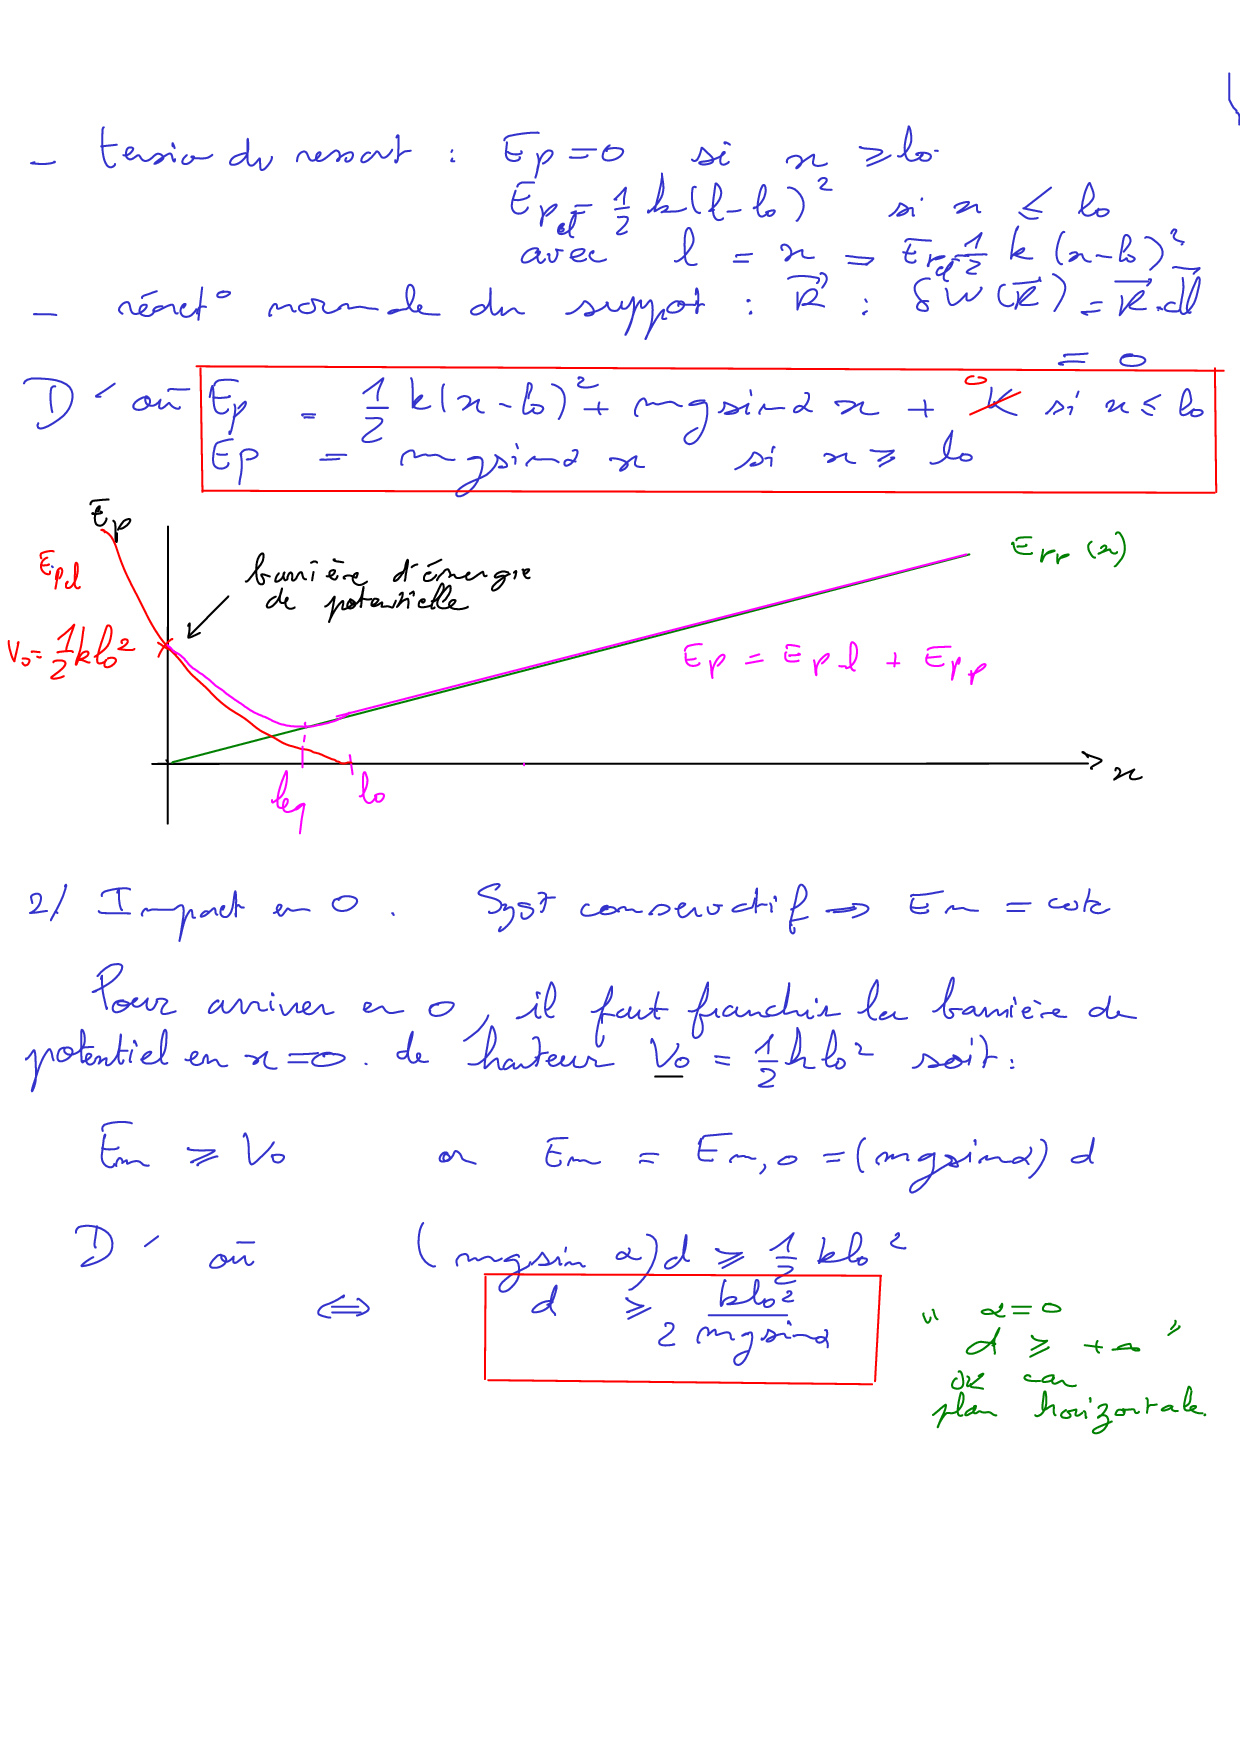 - tension du ressort : Ep = 0 si x ≥ l₀.
Ep_el = 1/2 k(l-l₀)² si x ≤ l₀
avec l = x → Ep_el = 1/2 k (x-l₀)²
- réact° normale du support : R⃗ : δW(R⃗) = R⃗.dl⃗
= 0
D'où Ep = 1/2 k(x-l₀)² + mg sinα x + K 0 si x ≤ l₀
Ep = mg sinα x si x ≥ l₀
Ep
Ep_el
barrière d'énergie
de potentielle
V₀ = 1/2 kl₀²
Epp (x)
Ep = Ep_el + Epp
leq l₀
x
2/ Impact en O. Syst conservatif ⇒ Em = cste
Pour arriver en O, il faut franchir la barrière de
potentiel en x=0. de hauteur V₀ = 1/2 kl₀² soit :
Em ≥ V₀ or Em = Em,0 = (mg sinα) d
D'où (mg sin α) d ≥ 1/2 kl₀²
⇔ d ≥ kl₀² / 2 mg sinα
" α = 0
d ≥ +∞ "
OK car
plan horizontale.